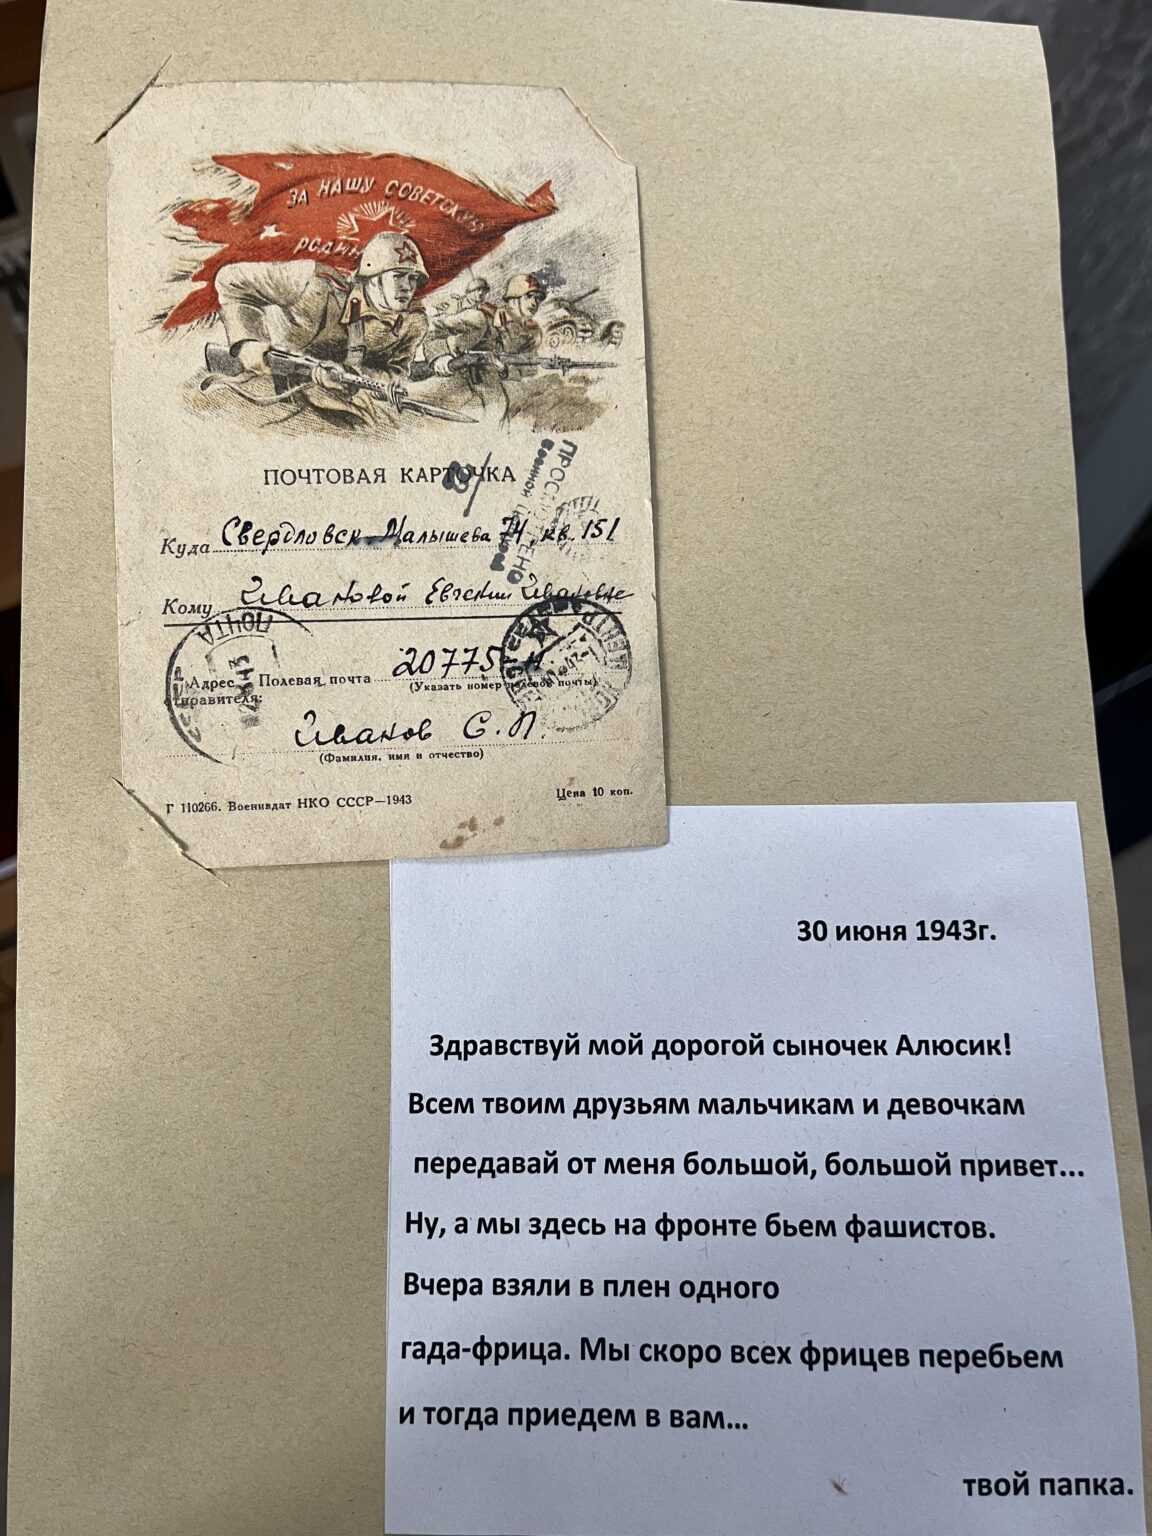 ЗА НАШУ СОВЕТСКУЮ
РОДИНУ
ПОЧТОВАЯ КАРТОЧКА
ПРОСМОТРЕНО
Военной
Куда Свердловск Малышева 74, кв. 151
Кому Ивановой Евгении Ивановне
ПОЧТА
Адрес отправителя:
Полевая почта 20775
(Указать номер полевой почты)
Иванов С. П.
(Фамилия, имя и отчество)
Г 110266. Воениздат НКО СССР—1943
Цена 10 коп.
30 июня 1943г.
Здравствуй мой дорогой сыночек Алюсик!
Всем твоим друзьям мальчикам и девочкам
передавай от меня большой, большой привет...
Ну, а мы здесь на фронте бьем фашистов.
Вчера взяли в плен одного
гада-фрица. Мы скоро всех фрицев перебьем
и тогда приедем в вам...
твой папка.